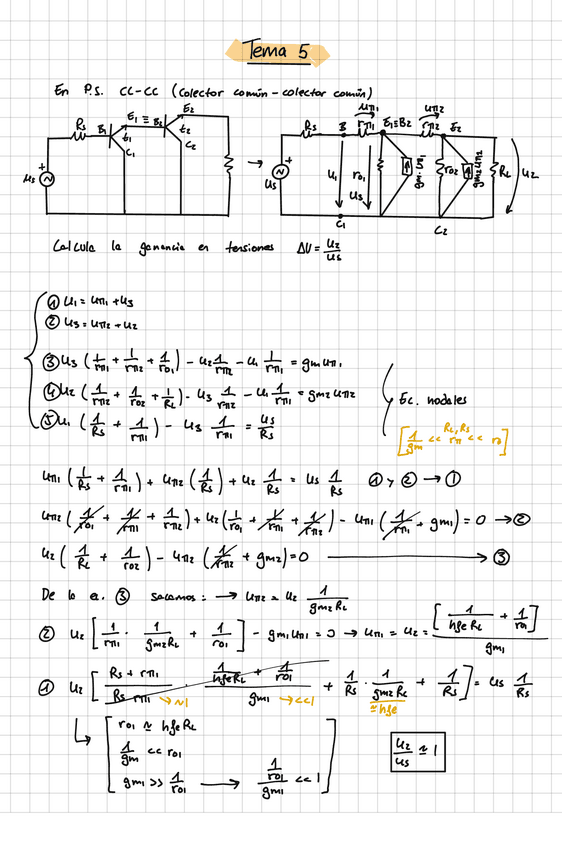 Tema 5
En P.S. CC-CC (colector común - colector común)
Rs B1 E1 ≡ B2 E2
t1 t2
C1 C2
us
Rs B uπ1 rπ1 E1≡B2 uπ2 rπ2 E2
us u1 ro1 u3 gm1 ro2 gm2 uπ2 RL u2
C1 C2
Calcula la ganancia en tensiones ΔU = u2/us
① u1 = uπ1 + u3
② u3 = uπ2 + u2
③ u3 (1/rπ1 + 1/rπ2 + 1/ro1) - u2 1/rπ2 - u1 1/rπ1 = gm uπ1
④ u2 (1/rπ2 + 1/ro2 + 1/RL) - u3 1/rπ2 - u1 1/rπ1 = gm2 uπ2
⑤ u1 (1/Rs + 1/rπ1) - u3 1/rπ1 = us/Rs
Ec. nodales
[1/gm << RL, Rs rπ << ro]
uπ1 (1/Rs + 1/rπ1) + uπ2 (1/Rs) + u2 1/Rs = us 1/Rs ① y ② → ①
uπ2 (1/ro1 + 1/rπ1 + 1/rπ2) + u2 (1/ro1 + 1/rπ1 + 1/rπ2) - uπ1 (1/rπ1 + gm1) = 0 → ②
u2 (1/RL + 1/ro2) - uπ2 (1/rπ2 + gm2) = 0 → ③
De la e. ③ sacamos: → uπ2 = u2 1/gm2RL
② u2 [1/rπ1 · 1/gm2RL + 1/ro1] - gm1uπ1 = 0 → uπ1 = u2 = [1/hfeRL + 1/ro1]/gm1
① u2 [Rs + rπ1/Rs rπ1 →~1 1/hfeRL + 1/ro1/gm1 →<<1 + 1/Rs · 1/gm2RL ≃hfe + 1/Rs] = us 1/Rs
ro1 ≃ hfe RL
1/gm << ro1
gm1 >> 1/ro1 → 1/ro1/gm1 << 1
u2/us ≃ 1